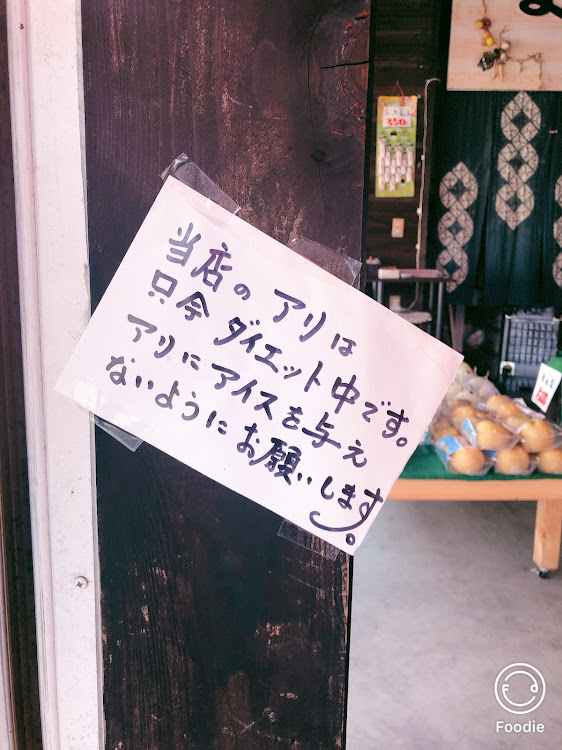 当店の アリは
只今 ダイエット中です。
アリにアイスを与え
ないようにお願いします。
350
Foodie